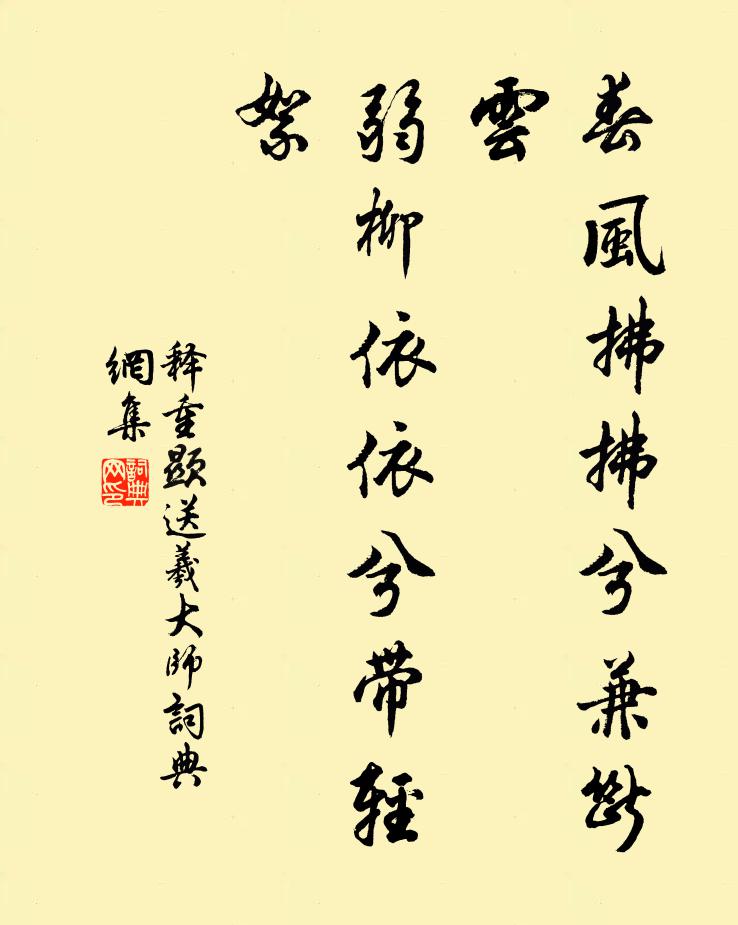 春風拂拂兮兼斷
雲
弱柳依依兮帶輕
絮
释重顯送羲大師詞典
網集
詞典
网印